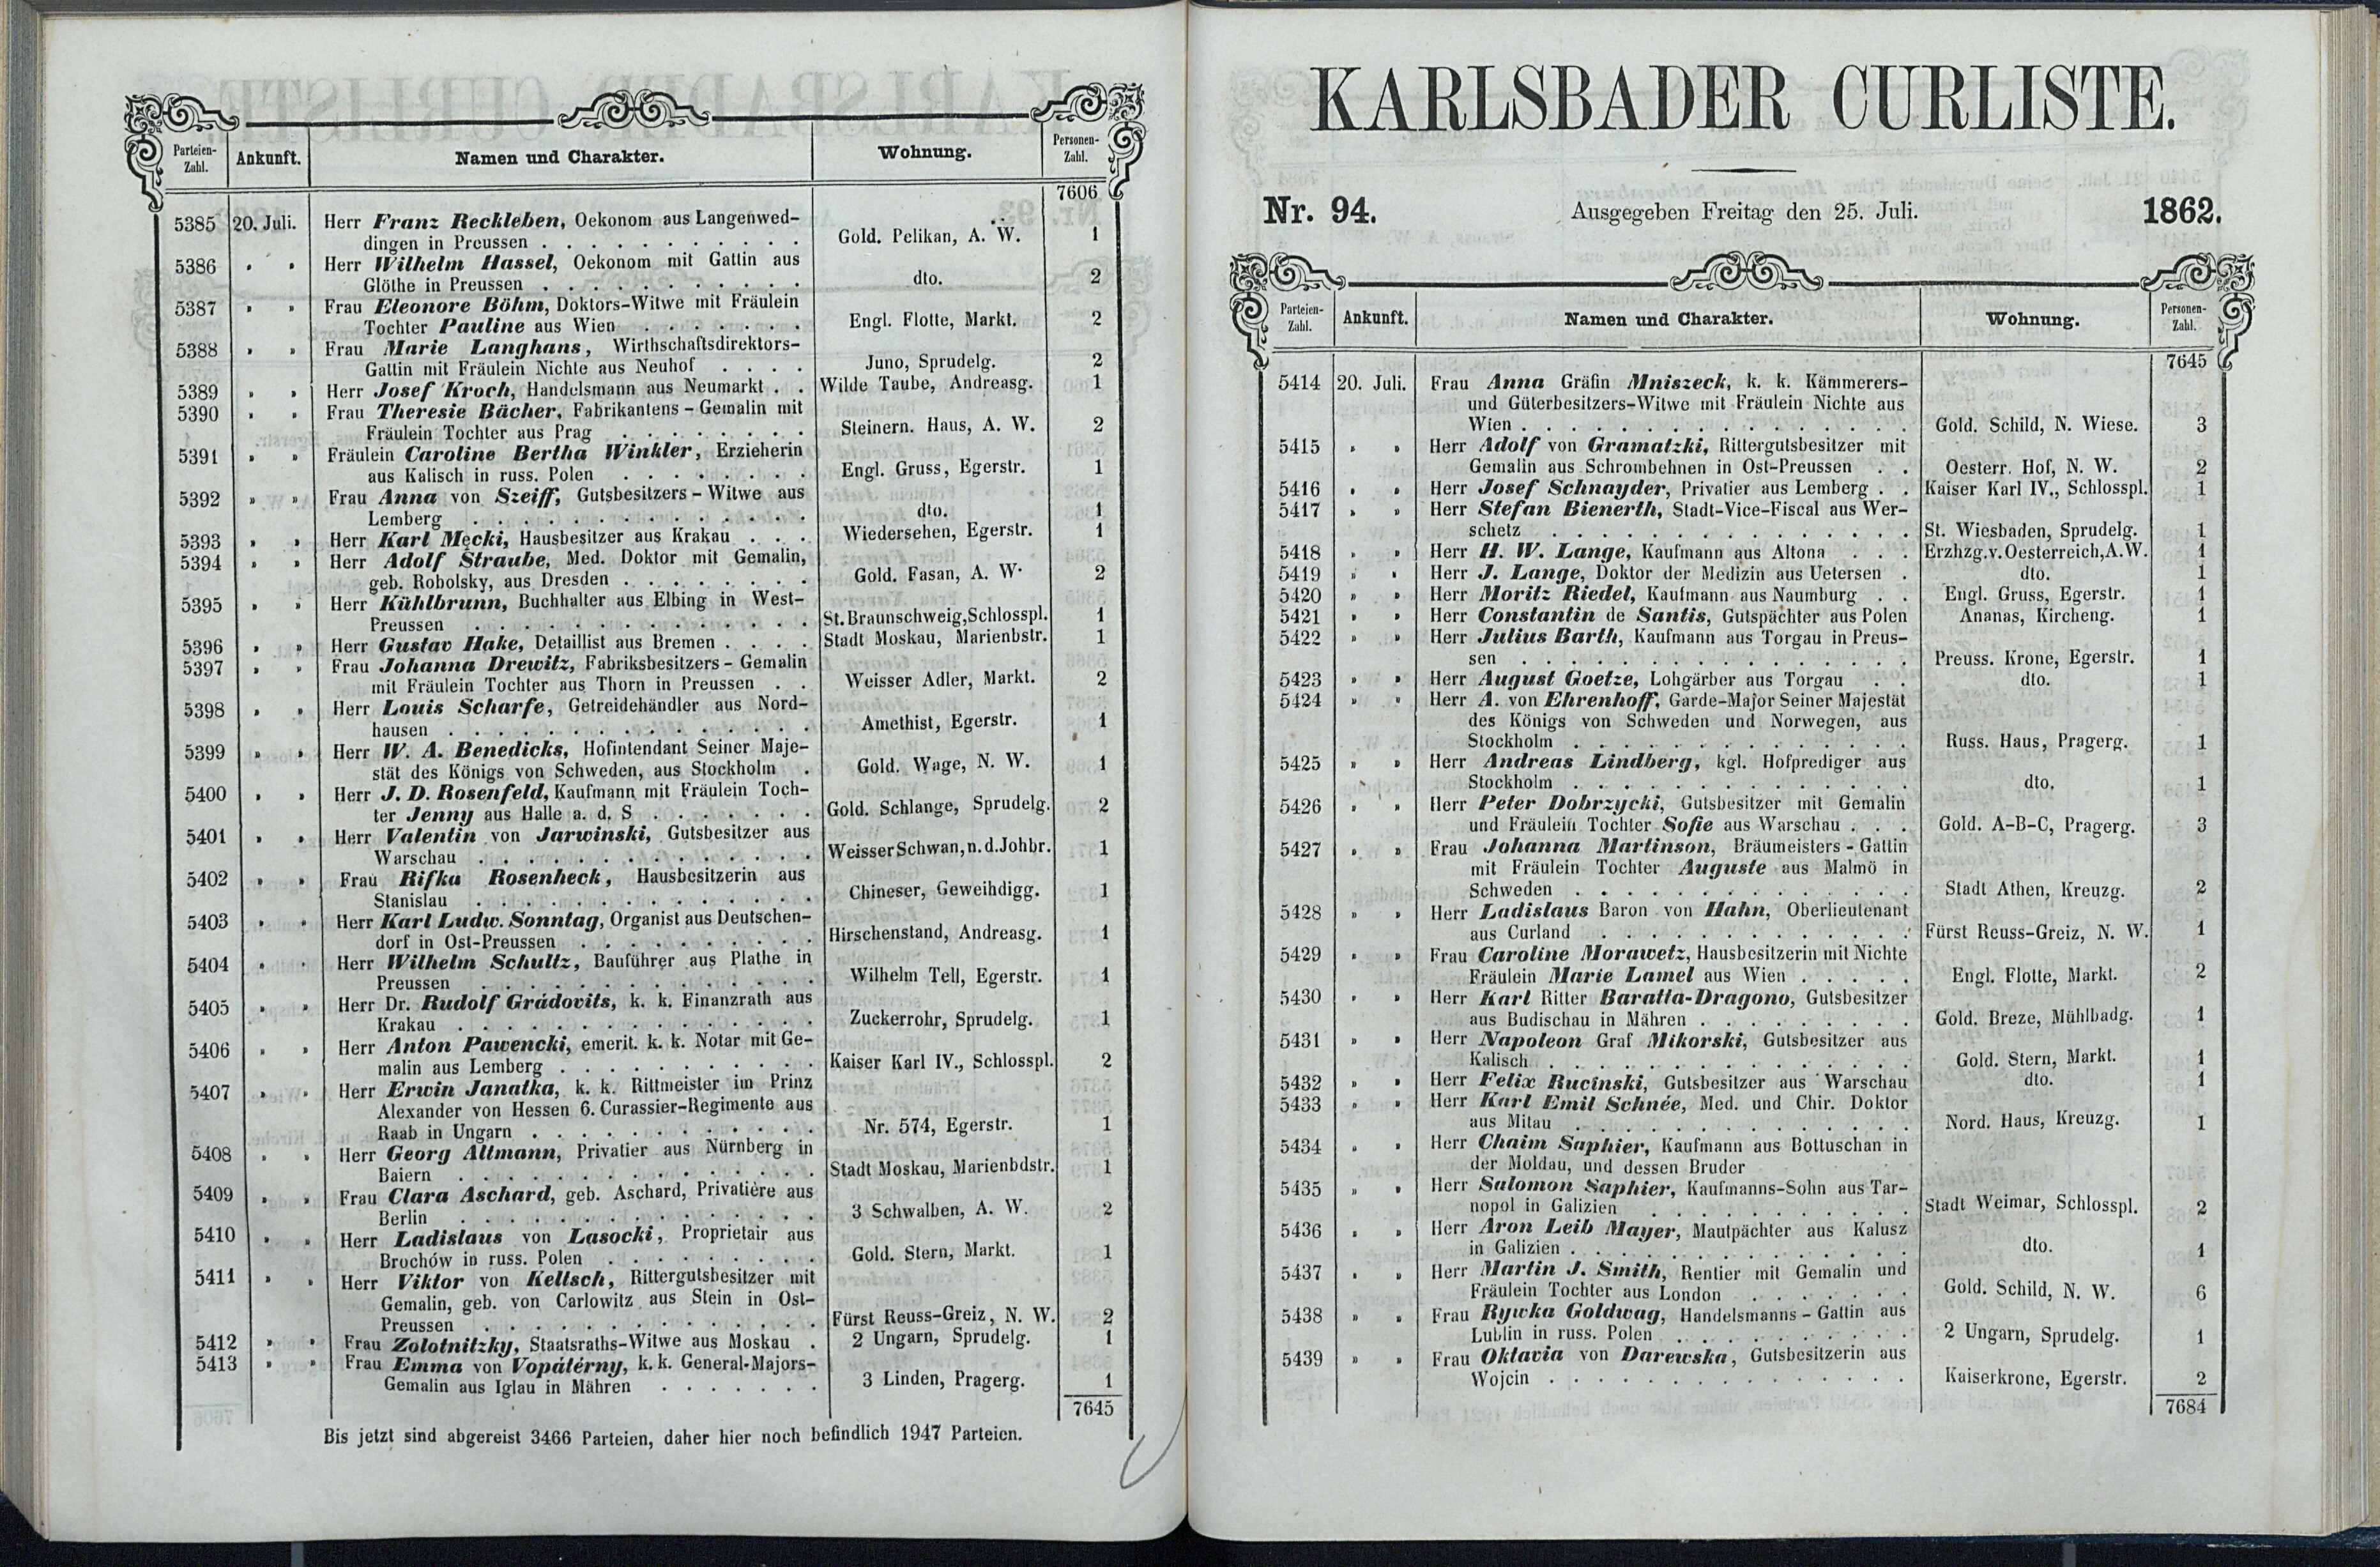 Parteien-Zahl. Ankunft. Namen und Charakter. Wohnung. Personen-Zahl.
7606
5385 20. Juli. Herr Franz Reckleben, Oekonom aus Langenwed-
dingen in Preussen . . . Gold. Pelikan, A. W. 1
5386 " " Herr Wilhelm Hassel, Oekonom mit Gattin aus
Glöthe in Preussen . . . dto. 2
5387 " " Frau Eleonore Böhm, Doktors-Witwe mit Fräulein
Tochter Pauline aus Wien . . . Engl. Flotte, Markt. 2
5388 " " Frau Marie Langhans, Wirthschaftsdirektors-
Gattin mit Fräulein Nichte aus Neuhof . . . Juno, Sprudelg. 2
5389 " " Herr Josef Kroch, Handelsmann aus Neumarkt . . Wilde Taube, Andreasg. 1
5390 " " Frau Theresie Bächer, Fabrikantens-Gemalin mit
Fräulein Tochter aus Prag . . . Steinern. Haus, A. W. 2
5391 " " Fräulein Caroline Bertha Winkler, Erzieherin
aus Kalisch in russ. Polen . . . Engl. Gruss, Egerstr. 1
5392 " " Frau Anna von Szeiff, Gutsbesitzers-Witwe aus
Lemberg . . . dto. 1
5393 " " Herr Karl Męcki, Hausbesitzer aus Krakau . . . Wiedersehen, Egerstr. 1
5394 " " Herr Adolf Straube, Med. Doktor mit Gemalin,
geb. Robolsky, aus Dresden . . . Gold. Fasan, A. W. 2
5395 " " Herr Kühlbrunn, Buchhalter aus Elbing in West-
Preussen . . . St. Braunschweig, Schlosspl. 1
5396 " " Herr Gustav Hake, Detaillist aus Bremen . . . Stadt Moskau, Marienbstr. 1
5397 " " Frau Johanna Drewitz, Fabriksbesitzers-Gemalin
mit Fräulein Tochter aus Thorn in Preussen . . Weisser Adler, Markt. 2
5398 " " Herr Louis Scharfe, Getreidehändler aus Nord-
hausen . . . Amethist, Egerstr. 1
5399 " " Herr W. A. Benedicks, Hofintendant Seiner Maje-
stät des Königs von Schweden, aus Stockholm . Gold. Wage, N. W. 1
5400 " " Herr J. D. Rosenfeld, Kaufmann mit Fräulein Toch-
ter Jenny aus Halle a. d. S . . . Gold. Schlange, Sprudelg. 2
5401 " " Herr Valentin von Jarwinski, Gutsbesitzer aus
Warschau . . . Weisser Schwan, n. d. Johbr. 1
5402 " " Frau Rifka Rosenheck, Hausbesitzerin aus
Stanislau . . . Chineser, Geweihdigg. 1
5403 " " Herr Karl Ludw. Sonntag, Organist aus Deutschen-
dorf in Ost-Preussen . . . Hirschenstand, Andreasg. 1
5404 " " Herr Wilhelm Schultz, Bauführer aus Plathe in
Preussen . . . Wilhelm Tell, Egerstr. 1
5405 " " Herr Dr. Rudolf Grádovits, k. k. Finanzrath aus
Krakau . . . Zuckerrohr, Sprudelg. 1
5406 " " Herr Anton Pawencki, emerit. k. k. Notar mit Ge-
malin aus Lemberg . . . Kaiser Karl IV., Schlosspl. 2
5407 " " Herr Erwin Janatka, k. k. Rittmeister im Prinz
Alexander von Hessen 6. Curassier-Regimente aus
Raab in Ungarn . . . Nr. 574, Egerstr. 1
5408 " " Herr Georg Altmann, Privatier aus Nürnberg in
Baiern . . . Stadt Moskau, Marienbdstr. 1
5409 " " Frau Clara Aschard, geb. Aschard, Privatière aus
Berlin . . . 3 Schwalben, A. W. 2
5410 " " Herr Ladislaus von Lasocki, Proprietair aus
Brochów in russ. Polen . . . Gold. Stern, Markt. 1
5411 " " Herr Viktor von Keltsch, Rittergutsbesitzer mit
Gemalin, geb. von Carlowitz aus Stein in Ost-
Preussen . . . Fürst Reuss-Greiz, N. W. 2
5412 " " Frau Zolotnitzky, Staatsraths-Witwe aus Moskau . 2 Ungarn, Sprudelg. 1
5413 " " Frau Emma von Vopátérny, k. k. General-Majors-
Gemalin aus Iglau in Mähren . . . 3 Linden, Pragerg. 1
7645
Bis jetzt sind abgereist 3466 Parteien, daher hier noch befindlich 1947 Parteien.
KARLSBADER CURLISTE.
Nr. 94. Ausgegeben Freitag den 25. Juli. 1862.
Parteien-Zahl. Ankunft. Namen und Charakter. Wohnung. Personen-Zahl.
7645
5414 20. Juli. Frau Anna Gräfin Mniszeck, k. k. Kämmerers-
und Güterbesitzers-Witwe mit Fräulein Nichte aus
Wien . . . Gold. Schild, N. Wiese. 3
5415 " " Herr Adolf von Gramatzki, Rittergutsbesitzer mit
Gemalin aus Schrombehnen in Ost-Preussen . . Oesterr. Hof, N. W. 2
5416 " " Herr Josef Schnayder, Privatier aus Lemberg . . Kaiser Karl IV., Schlosspl. 1
5417 " " Herr Stefan Bienerth, Stadt-Vice-Fiscal aus Wer-
schetz . . . St. Wiesbaden, Sprudelg. 1
5418 " " Herr H. W. Lange, Kaufmann aus Altona . . . Erzhzg. v. Oesterreich, A. W. 1
5419 " " Herr J. Lange, Doktor der Medizin aus Uetersen . dto. 1
5420 " " Herr Moritz Riedel, Kaufmann aus Naumburg . . Engl. Gruss, Egerstr. 1
5421 " " Herr Constantin de Santis, Gutspächter aus Polen Ananas, Kircheng. 1
5422 " " Herr Julius Barth, Kaufmann aus Torgau in Preus-
sen . . . Preuss. Krone, Egerstr. 1
5423 " " Herr August Goetze, Lohgärber aus Torgau . . dto. 1
5424 " " Herr A. von Ehrenhoff, Garde-Major Seiner Majestät
des Königs von Schweden und Norwegen, aus
Stockholm . . . Russ. Haus, Pragerg. 1
5425 " " Herr Andreas Lindberg, kgl. Hofprediger aus
Stockholm . . . dto. 1
5426 " " Herr Peter Dobrzycki, Gutsbesitzer mit Gemalin
und Fräulein Tochter Sofie aus Warschau . . . Gold. A-B-C, Pragerg. 3
5427 " " Frau Johanna Martinson, Bräumeisters-Gattin
mit Fräulein Tochter Auguste aus Malmö in
Schweden . . . Stadt Athen, Kreuzg. 2
5428 " " Herr Ladislaus Baron von Hahn, Oberlieutenant
aus Curland . . . Fürst Reuss-Greiz, N. W. 1
5429 " " Frau Caroline Morawetz, Hausbesitzerin mit Nichte
Fräulein Marie Lamel aus Wien . . . Engl. Flotte, Markt. 2
5430 " " Herr Karl Ritter Baratta-Dragono, Gutsbesitzer
aus Budischau in Mähren . . . Gold. Breze, Mühlbadg. 1
5431 " " Herr Napoleon Graf Mikorski, Gutsbesitzer aus
Kalisch . . . Gold. Stern, Markt. 1
5432 " " Herr Felix Rucinski, Gutsbesitzer aus Warschau dto. 1
5433 " " Herr Karl Emil Schnée, Med. und Chir. Doktor
aus Mitau . . . Nord. Haus, Kreuzg. 1
5434 " " Herr Chaim Saphier, Kaufmann aus Bottuschan in
der Moldau, und dessen Bruder
5435 " " Herr Salomon Saphier, Kaufmanns-Sohn aus Tar-
nopol in Galizien . . . Stadt Weimar, Schlosspl. 2
5436 " " Herr Aron Leib Mayer, Mautpächter aus Kalusz
in Galizien . . . dto. 1
5437 " " Herr Martin J. Smith, Rentier mit Gemalin und
Fräulein Tochter aus London . . . Gold. Schild, N. W. 6
5438 " " Frau Rywka Goldwag, Handelsmanns-Gattin aus
Lublin in russ. Polen . . . 2 Ungarn, Sprudelg. 1
5439 " " Frau Oktavia von Darewska, Gutsbesitzerin aus
Wojcin . . . Kaiserkrone, Egerstr. 2
7684